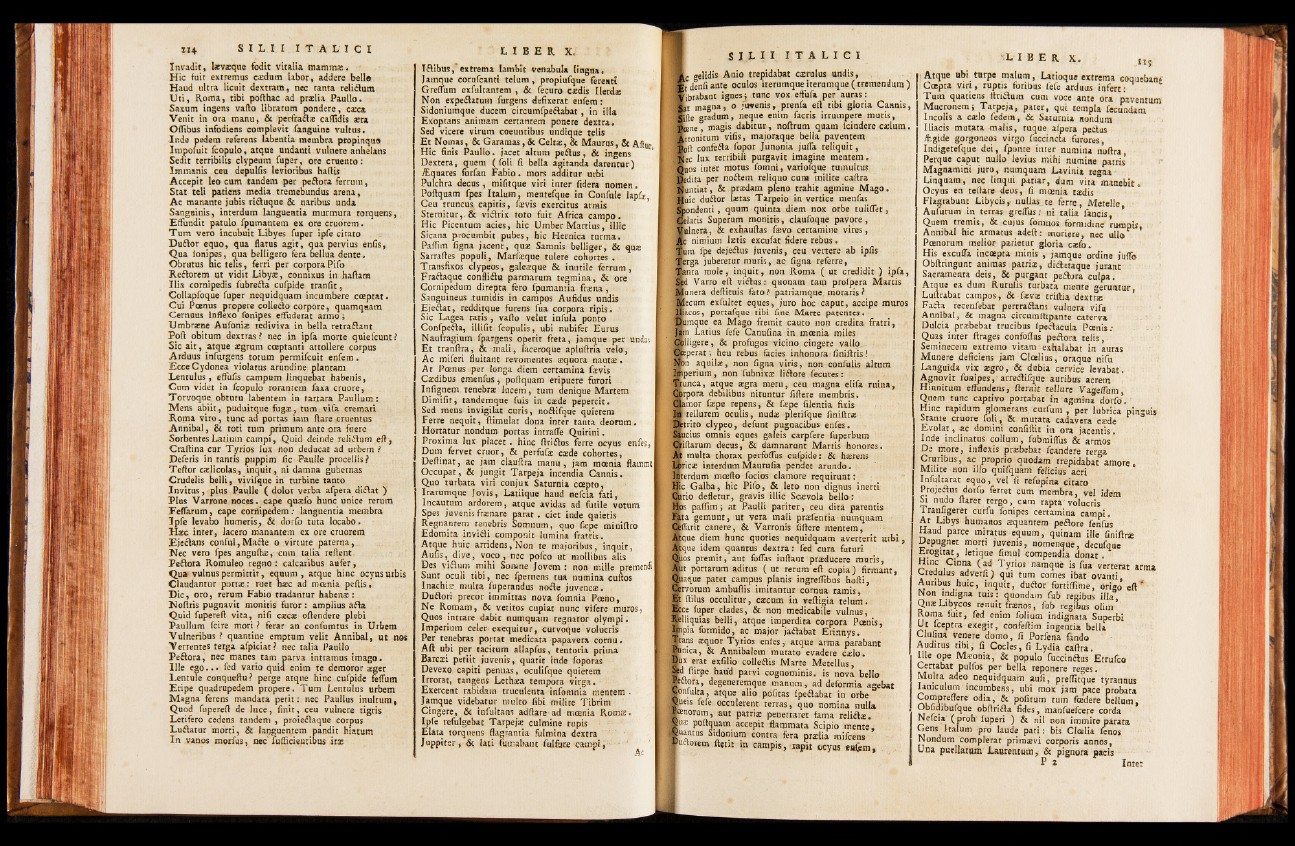 114 SILII ITALICI
Invadit, lævæque fodit vitalia mammæ.
Hic fuit extremus cædum labor, addere bello
Haud ultra licuit dextram, nec tanta relictum
Uti, Roma, tibi posthac ad prælia Paullo.
Saxum ingens vasto libratum pondere, cæca
Venit in ora manu, & perfractæ cassidis æra
Ossibus infodiens complevit sanguine vultus.
Inde pedem referens labentia membra propinquo
Imposuit scopulo, atque undanti vulnere anhelans
Sedit terribilis clypeum super, ore cruento:
Immanis ceu depulsis levioribus hastis
Accepit leo cum tandem per pectora ferrum,
Stat teli patiens media tremebundus arena,
Ac manante jubis rictuque & naribus unda
Sanguinis, interdum languentia murmura torquens,
Effundit patulo spumantem ex ore cruorem.
Tum vero incubuit Libyes super ipse citato
Ductor equo, qua flatus agit, qua pervius ensis,
Qua sonipes, qua belligero fera bellua dente.
Obrutus hic telis, ferri per corpora Piso
Rectorem ut vidit Libyæ, connixus in hastam
Ilia cornipedis subrecta cuspide transit,
Collapsoque super nequidquam incumbere cœptat.
Cui Pœnus propere collecto corpore, quamquam
Cernuus inflexo sonipes effuderat armo;
Umbræne Ausoniæ rediviva in bella retractant
Post obitum dextras? nec in ipsa morte quiescunt?
Sic ait, atque ægrum cœptanti attollere corpus
Arduus insurgens totum permiscuit ensem.
Ecce Cydonea violatus arundine plantam
Lentulus, effusis campum linquebat habenis,
Cum videt in scopulo rorantem saxa cruore,
Torvoque obtutu labentem in tartara Paullum:
Mens abiit, puduitque fugæ, tum visa cremari
Roma viro, tunc ad portas iam stare cruentus
Annibal, & toti tum primum ante ora fuere
Sorbentes Latium campi, Quid deinde relictum est,
Crastina cur Tyrios lux non deducat ad urbem?
Deseris in tantis puppim sic Paulle procellis?
Testor cælicolas, inquit, ni damna gubernas
Crudelis belli, vivisque in turbine tanto
Invitus, plus Paulle (dolor verba aspera dictat)
Plus Varrone noces. cape quæso hunc unice rerum
Fessarum, cape cornipedem: languentia membra
Ipse levabo humeris, & dorso tuta locabo.
Hæc inter, lacero manantem ex ore cruorem
Ejectans consul, Macte o virtute paterna,
Nec vero spes angustæ, cum talia restent
Pectora Romuleo regno: calcaribus aufer,
Qua vulnus permittit, equum, atque hinc ocyus urbis
Claudantur portæ: ruet hæc ad mœnia pestis.
Dic, oro, rerum Fabio tradantur habenæ:
Nostris pugnavit monitis furor: amplius acta
Quid superest vita, nisi cæcæ ostendere plebi
Paullum scire mori? ferar an consumtus in Urbem
Vulneribus? quantine emptum velit Annibal, ut nos
Vertentes terga aspiciat? nec talia Paullo
Pectora, nec manes tam parva intramus imago.
Ille ego... sed vario quid enim te demoror æger
Lentule conquestu? perge atque hinc cuspide fessum
Etipe quadrupedem propere. Tum Lentulus urbem
Magna ferens mandata petit: nec Paullus inultum,
Quod superest de luce, sinit, ceu vulnere tigris
Letifero cedens tandem, projectaque corpus
Luctatur morti, & languentem pandit hiatum
In vanos morsus, nec sufficientibus iræ
LIBER X.
Ictibus, extrema lambit venabula lingua.
Jamque coruscanti telum, propiusque ferenti
Gressum exsultantem, & securo cædis Ilerdæ
Non expectatum surgens defixerat ensem:
Sidoniumque ducem circumspectabat, in illa
Exoptans animam certantem ponere dextra.
Sed vicere virum coeuntibus undique telis
Et Nomas, & Garamas, & Celtæ, & Maurus, & Astur,
Hic finis Paullo. jacet altum pectus, & ingens
Dextera, quem (soli si bella agitanda darentur)
Æquares forsan Fabio. mors additur urbi
Pulchra decus, misitque viri inter sidera nomen.
Postquam spes Italum, mentesque in Consule lapsæ,
Ceu truncus capitis, sævis exercitus armis
Sternitur, & victrix toto fuit Africa campo.
Hic Picentum acies, hic Umber Martius, illic
Sicana procumbit pubes, hic Hernica turma.
Passim signa jacent, quæ Samnis belliger, & quæ
Sarrastes populi, Marsæque tulere cohortes.
Transfixos clypeos, galeæque & inutile ferrum,
Fractaque conflictu parmarum tegmina, & ore
Cornipedum direpta fero spumantia fræna,
Sanguineus tumidis in campos Aufidus undis
Ejectat, redditque furens sua corpora ripis.
Sic Lagea ratis, vasto velut insula ponto
Conspecta, illisit scopulis, ubi nubifer Eurus
Naufragium spargens operit freta, jamque per undas
Et transtra, & mali, laceroque aplustria velo,
Ac miseri fluitant revomentes æquora nautæ.
At Pœnus per longa diem certamina sævis
Cædibus emensus, postquam eripuere furori
Insignem tenebræ lucem, tum denique Martem
Dimisit, tandemque suis in cæde pepercit.
Sed mens invigilat curis, noctisque quietem
Ferre nequit, stimulat dona inter tanta deorum.
Hortatur nondum portas intrasse Quirini.
Proxima lux placet. hinc strictos ferre ocyus enses,
Dum fervet cruor, & perfusæ cæde cohortes,
Destinat, ac jam claustra manu, jam mœnia flammis
Occupat, & jungit Tarpeja incendia Cannis.
Quo turbata viri conjux Saturnia cœpto,
Irarumque Jovis, Latiique haud nescia fati,
Incautum ardorem, atque avidas ad futile votum
Spes juvenis frænare parat. ciet inde quietis
Regnantem tenebris Somnum, quo sæpe ministro
Edomita invicti componit lumina fratris.
Atque huic arridens, Non te majoribus, inquit,
Ausis, dive, voco, nec posco ut mollibus alis
Des victum mihi Somne Jovem: non mille premendi
Sunt oculi tibi, nec spernens tua numina custos
Inachiæ multa superandus nocte juvencæ.
Ductori precor immittas nova somnia Pœno,
Ne Romam, & vetitos cupiat nunc visere muros,
Quos intrare dabit numquam regnator olympi.
Imperium celer exequitur, curvoque volucris
Per tenebras portat medicata papavera cornu.
Ast ubi per tacitum allapsus, tentoria prima
Barcæi petiit juvenis, quatit inde soporas
Devexo capiti pennas, oculisque quietem
Irrorat, tangens Lethæa tempora virga.
Exercent rabidam truculenta insomnia mentem.
Jamque videbatur multo sibi milite Tibrim
Cingere, & insultans adstare ad mœnia Romæ.
Ipse refulgebat Tarpejæ culmine rupis
Elata torquens flagrantia fulmina dextra
Juppiter, & lati fumabant sulfure campi,
Ac
SILII ITALICI
Ac gelidis Anio trepidabat cærulus undis,
Et densi ante oculos iterumque iterumque (tremendum)
Vibrabant ignes; tunc vox effusa per auras:
Sat magna, o juvenis, prensa est tibi gloria Cannis,
Siste gradum, neque enim sacris irrumpere muris,
Pœne, magis dabitur, nostrum quam scindere cælum.
Attonitum visis, majoraque bella paventem
Post confecta sopor Junonia jussa reliquit,
Nec lux terribili purgavit imagine mentem.
Quos inter motus somni, variosque tumultus
Dedita per noctem reliquo cum milite castra
Nuntiat, & prædam pleno trahit agmine Mago.
Huic ductor lætas Tarpeio in vertice mensas
Spondenti, quum quinta diem nox orbe tulisset,
Celatis Superum monitis, clausoque pavore,
Vulnera, & exhaustas sævo certamine vires,
Ac nimium lætis excusat fidere rebus.
Tum spe dejectus juvenis, ceu vertere ab ipsis
Terga juberetur muris, ac signa referre,
Tanta mole, inquit, non Roma (ut credidit) ipsa,
Sed Varro est victus: quonam tam prospera Martis
Munera destituis fato? patriamque moraris?
Mecum exsultet eques, juro hoc caput, accipe muros
Iliacos, portasque tibi sine Marte patentes.
Dumque ea Mago fremit cauto non credita fratri,
Jam Latius sese Canusina in mœnia miles
Colligere, & profugos vicino cingere vallo
Cœperat: heu rebus facies inhonora sinistris!
Non aquilæ, non signa viris, non consulis altum
Imperium, non subnixæ lictore secures:
Trunca, atque ægra metu, ceu magna elisa ruina,
Corpora debilibus nituntur sistere membris.
Clamor sæpe repens, & sæpe silentia fixis
In tellurem oculis, nudæ plerisque sinistræ
Detrito clypeo, desunt pugnacibus enses.
Saucius omnis eques galeis carpsere superbum
Cristarum decus, & damnarunt Martis honores.
At multa thorax perfossus cuspide: & hærens
Loricæ interdum Maurusia pendet arundo.
Interdum mœsto socios clamore requirunt:
Hic Galba, hic Piso, & leto non dignus inerti
Curio defletur, gravis illic Scævola bello:
Hos passim; at Paulli pariter, ceu dira parentis
Fata gemunt, ut vera mali præsentia numquam
Cessarit canere, & Varronis sistere mentem,
Atque diem hunc quoties nequidquam averterit urbi,
Atque idem quantus dextra: sed cura futuri
Quos premit, aut fossas instant præducere muris,
Aut portarum aditus (ut rerum est copia) firmant,
Quasque patet campus planis ingressibus hosti,
Cervorum ambustis imitantur cornua ramis,
Et stilus occulitur, cæcum in vestigia telum.
Ecce super clades, & non medicabile vulnus,
Relliquias belli, atque imperdita corpora Pœnis,
Impia formido, ac major jactabat Erinnys.
Trans æquor Tyrios enses, atque arma parabant
Punica, & Annibalem mutato evadere cælo.
Dux erat exsilio collectis Marte Metellus,
Sed stirpe haud parvi cognominis, is nova bello
Pectora, degeneremque manum, ad deformia agebat
Consulta, atque alio positas spectabat in orbe
Queis sese occulerent terras, quo nomina nulla
Pœnorum, aut patriæ penetraret fama relictæ.
Quæ postquam accepit flammata Scipio mente,
Quantus Sidonium contra fera prælia miscens
Ductorem stetit in campis, rapit ocyus ensem,
LIBER X. 115
Atque ubi turpe malum, Latioque extrema coquebant
Cœpta viri, ruptis foribus sese arduus infert:
Tum quatiens strictum cum voce ante ora paventum
Mucronem; Tarpeja, pater, qui templa secundam
Incolis a cælo sedem, & Saturnia nondum
Iliacis mutata malis, tuque aspera pectus
Ægide gorgoneos virgo succincta furores,
Indigetesque dei, sponte inter numina nostra,
Perque caput nullo levius mihi numine patris
Magnanimi juro, numquam Lavinia regna
Linquam, nec linqui patiar, dum vita manebit.
Ocyus en testare deos, si mœnia tædis
Flagrabunt Libycis, nullas te ferre, Metelle,
Ausurum in terras gressus: ni talia sancis,
Quem tremis, & cujus somnos formidine rumpis,
Annibal hic armatus adest: moriere, nec ullo
Pœnorum melior parietur gloria cæso.
His excussa incœpta minis, jamque ordine jusso
Obstringunt animas patriæ, dictataque jurant
Sacramenta deis, & purgant pectora culpa.
Atque ea dum Rutulis turbata mente geruntur,
Lustrabat campos, & sævæ tristia dextræ
Facta recensebat pertractans vulnera visu
Annibal, & magna circumstipante caterva
Dulcia præbebat trucibus spectacula Pœnis:
Quas inter strages confossus pectora telis,
Seminecem extremo vitam exhalabat in auras
Munere deficiens jam Clœlius, oraque nisu
Languida vix ægro, & dubia cervice levabat.
Agnovit sonipes, arrectisque auribus acrem
Hinnitum effundens, sternit tellure Vagesum,
Quem tunc captivo portabat in agmina dorso.
Hinc rapidum glomerans cursum, per lubrica pinguis
Stante cruore soli, & mutata cadavera cæde
Evolat, ac domini consistit in ora jacentis.
Inde inclinatus collum, submissus & armos
De more, inflexis præbebat scandere terga
Cruribus, ac proprio quodam trepidabat amore.
Milite non illo quisquam felicius acri
Insultarat equo, vel si resupina citato
Projectus dorso ferret cum membra, vel idem
Si nudo staret tergo, cum rapta volucris
Transigeret cursu sonipes certamina campi.
At Libys humanos æquantem pectore sensus
Haud parce miratus equum, quinam ille sinistræ
Depugnet morti juvenis, nomenque, decusque
Erogitat, letique simul compendia donat.
Hinc Cinna (ad Tyrios namque is sua verterat arma
Credulus adversi) qui tum comes ibat ovanti,
Auribus huic, inquit, ductor fortissime, origo est
Non indigna tuis: quondam sub regibus illa,
Quæ Libycos renuit frænos, sub regibus olim
Roma fuit, sed enim solium indignata Superbi
Ut sceptra exegit, confestim ingentia bella
Clusina venere domo, si Porsena fando
Auditus tibi, si Cocles, si Lydia castra.
Ille ope Mæonia, & populo succinctus Etrusco
Certabat pulsos per bella reponere reges.
Multa adeo nequidquam ausi, pressitque tyrannus
Ianiculum incumbens, ubi mox jam pace probata
Compressere odia, & positum tum fœdere bellum,
Obsidibusque obstricta fides, mansuescere corda
Nescia (proh superi) & nil non immite parata
Gens Italum pro laude pati: bis Clœlia senos
Nondum complerat primævi corporis annos,
Una puellarum Laurentum, & pignora pacis
P 2 Inter